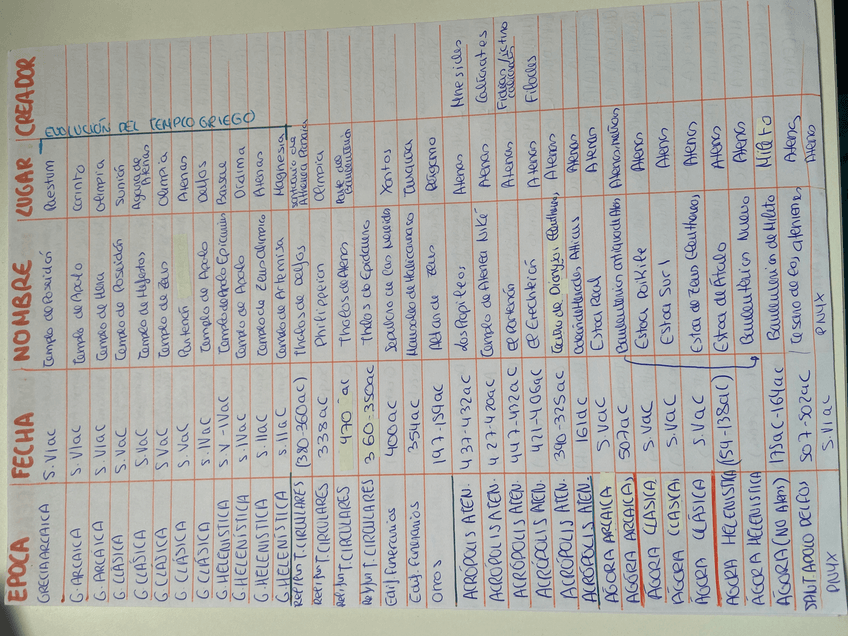 EPOCA FECHA NOMBRE LUGAR CREADOR
EVOLUCIÓN DEL TEMPLO GRIEGO
GRECIA ARCAICA S. VI aC Templo de Poseidón Paestum
G. ARCAICA S. VI aC Templo de Apolo Corinto
G. ARCAICA S. VII aC Templo de Hera Olimpia
G. CLÁSICA S. V aC Templo de Poseidón Sunión
G. CLÁSICA S. V aC Templo de Hefestos Agora de Atenas
G. CLÁSICA S. V aC Templo de Zeus Olimpia
G. CLÁSICA S. V aC Partenón Atenas
G. CLÁSICA S. IV aC Templo de Apolo Delfos
G. HELENÍSTICA S. V - IV aC Templo de Apolo Epicureus Bassae
G. HELENÍSTICA S. IV aC Templo de Apolo Didima
G. HELENÍSTICA S. II aC Templo de Zeus Olimpico Atenas
G. HELENÍSTICA S. II aC Templo de Artemisa Magnesia
T. CIRCULARES (380-360aC) Tholos de Delfos Santuario de Athenea Pronaia
T. CIRCULARES 338aC Philippeion Olimpia
T. CIRCULARES 470 ac Tholos de Atenas
T. CIRCULARES 360-350aC Tholos de Epidauro
Edif funerarios 400aC Sepulcro de las Nereidas Xantos
Edif. funerarios 354aC Mausoleo de Halicarnaso
Otros 197-159aC Altar de Zeus Pérgamo
ACRÓPOLIS ATEN. 437-432aC Los Propileos Atenas Mnesicles
ACRÓPOLIS ATEN. 427-420aC Templo de Atenea Niké Atenas Calicrates
ACRÓPOLIS ATEN. 447-432aC El Partenón Atenas Fidias/Ictino calicrates
ACRÓPOLIS ATEN. 421-406aC El Erecteión Atenas Filocles
ACRÓPOLIS ATEN. 340-325aC Teatro de Dionysos Eleuthereus Atenas
ACRÓPOLIS ATEN. 161dC Odeón de Herodes Atticus Atenas
ÁGORA ARCAICA S. V aC Estoa Real Atenas
ÁGORA ARCAICA 507aC Bouleuterion antiguo Atenas
ÁGORA CLÁSICA S. V aC Estoa Poikile Atenas
ÁGORA CLÁSICA S. V aC Estoa Sur I Atenas
ÁGORA CLÁSICA S. V aC Estoa de Zeus Eleutherios Atenas
ÁGORA HELENISTICA (159-138aC) Estoa de Átalo Atenas
ÁGORA HELENISTICA Bouleuterion Nuevo Atenas
ÁGORA (NO ATEN) 175aC-164aC Bouleuterion de Mileto Mileto
SANT. APOLO DELFOS 507-302aC Tesoro de los atenienses Atenas
PNYX S. VI ac PNYX Atenas